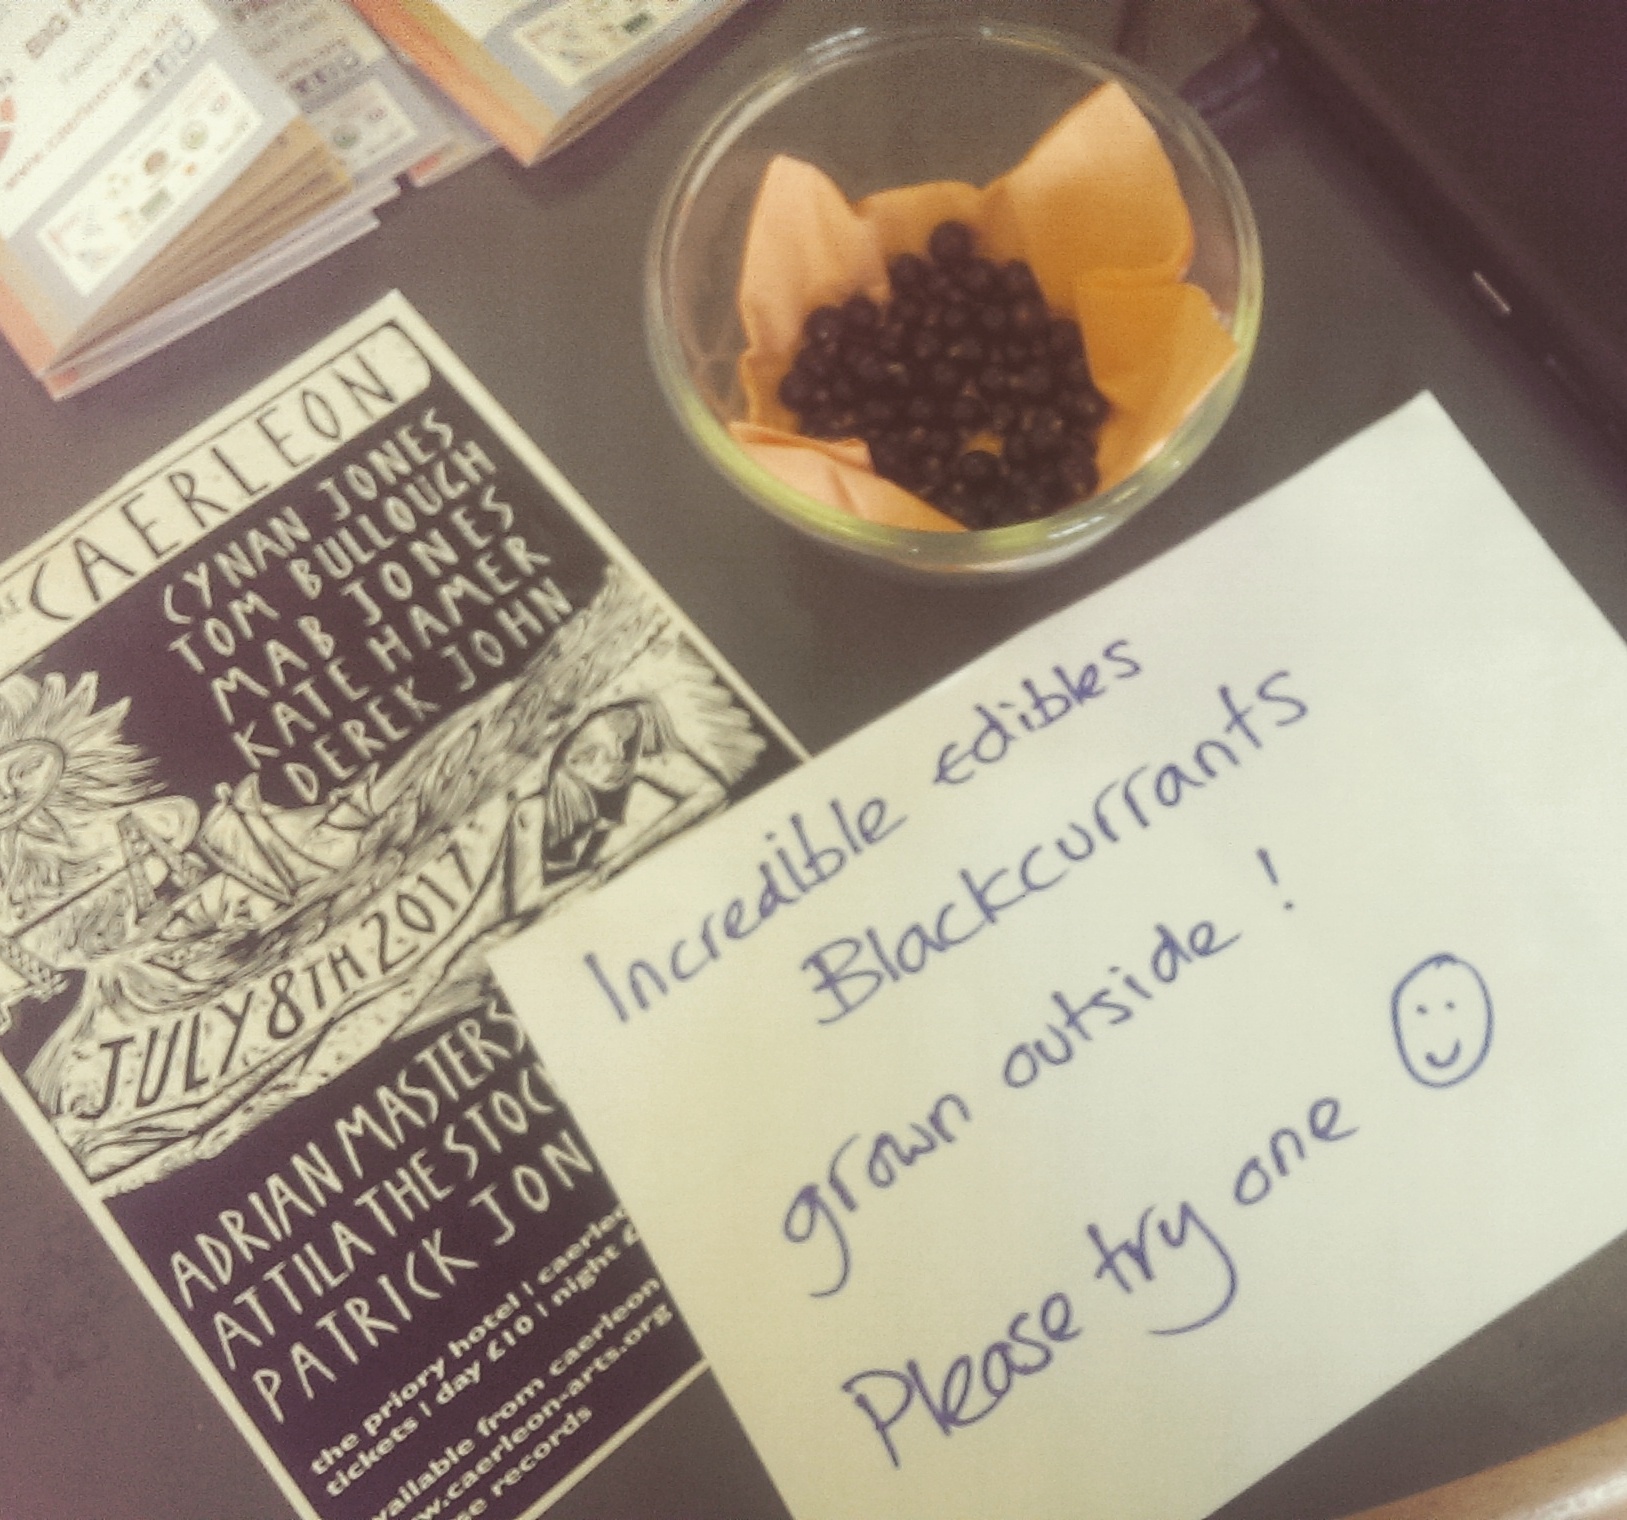 CAERLEON
CYNAN JONES
TOM BULLOUGH
MAB JONES
KATE HAMER
DEREK JOHN
JULY 8TH 2017
ADRIAN MASTERS
ATTILA THE STOC
PATRICK JON
the priory hotel | caerleo
tickets | day £10 | night £
vailable from caerleon
w.caerleon-arts.org
se records
Incredible edibles
Blackcurrants
grown outside!
Please try one